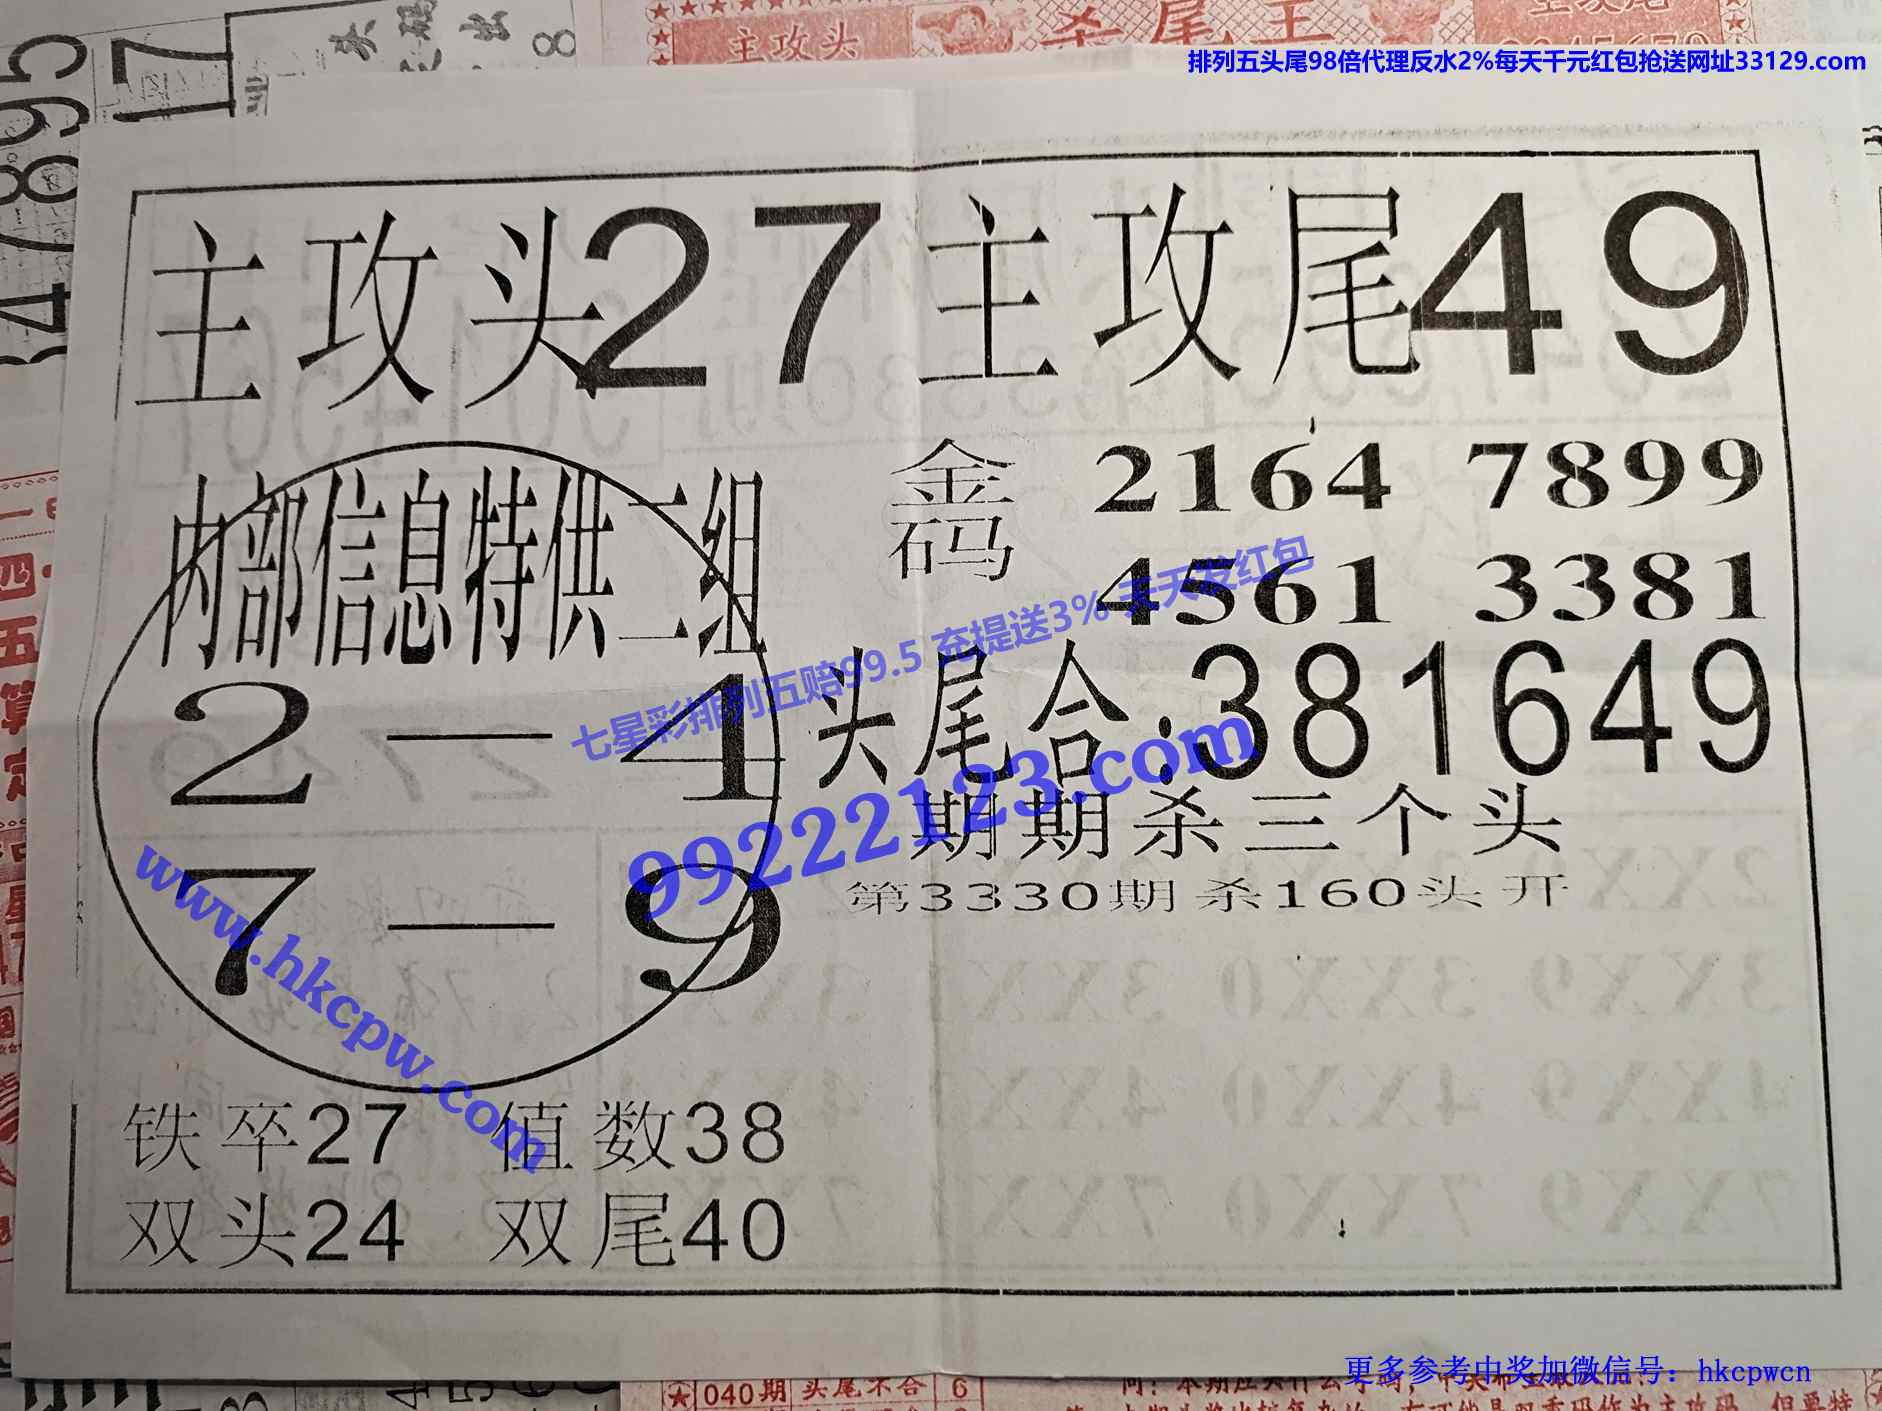 主攻头
杀尾王
主攻尾
排列五头尾98倍代理反水2%每天千元红包抢送网址33129.com
主攻头27 主攻尾49
内部信息特供二组
2—4
7—9
金码
2164 7899
4561 3381
头尾合:381649
期期杀三个头
第3330期杀160头开
七星彩排列五赔99.5 充提送3% 天天发红包
99222123.com
www.hkcpw.com
铁卒27 值数38
双头24 双尾40
更多参考中奖加微信号：hkcpwcn
040期 头尾不合 6